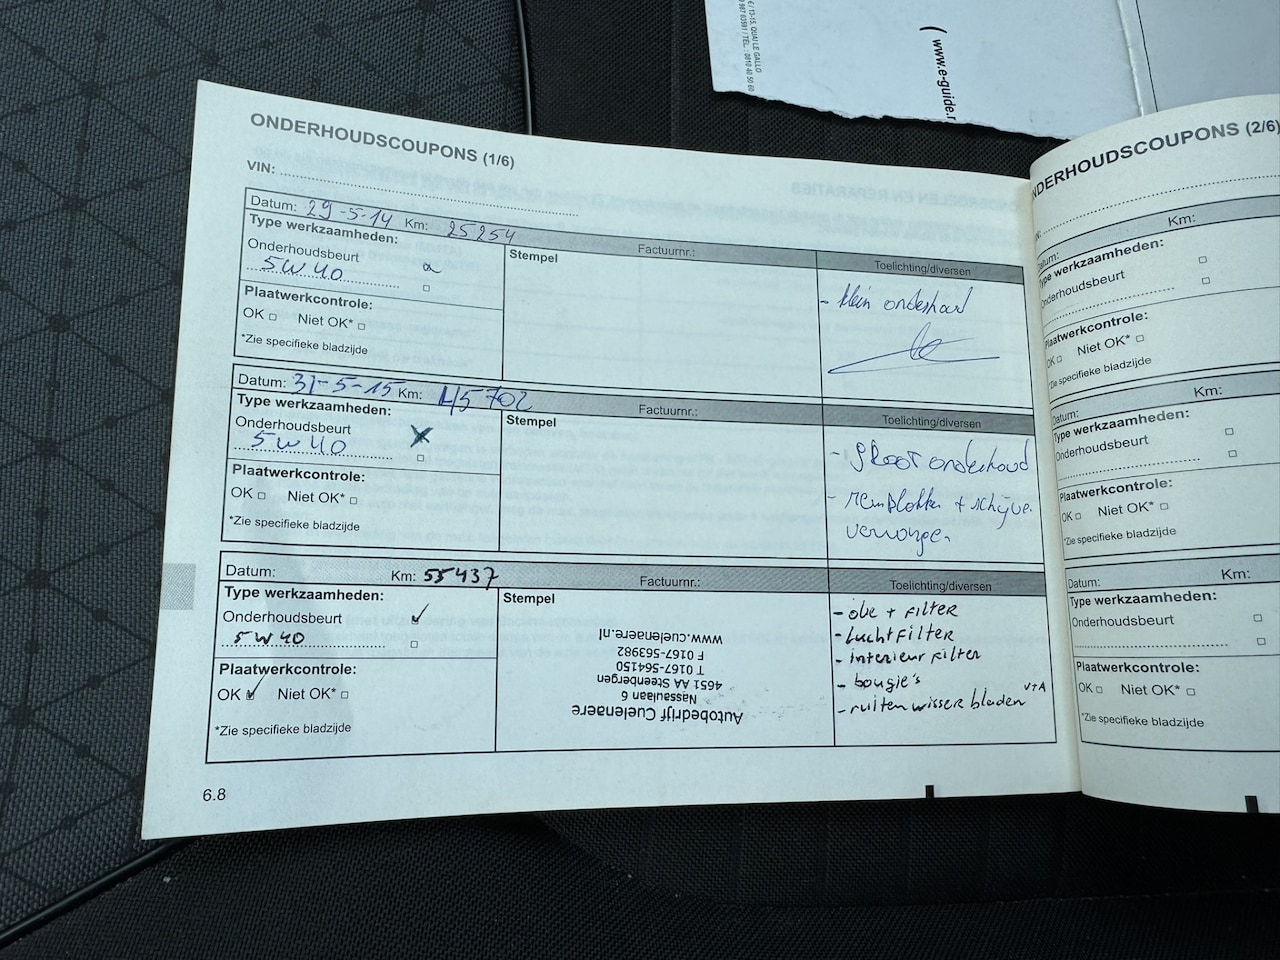 E / 13-15, QUAI LE GALLO
987 03591 / TÉL. : 0810 40 50 60
( www.e-guide.r
ONDERHOUDSCOUPONS (1/6)
VIN:
Datum: 29-5-14 Km: 25254
Type werkzaamheden:
Onderhoudsbeurt
5W40
Plaatwerkcontrole:
OK □ Niet OK* □
*Zie specifieke bladzijde
Stempel
Factuurnr.:
Toelichting/diversen
- klein onderhoud
Datum: 31-5-15 Km: 45702
Type werkzaamheden:
Onderhoudsbeurt
5W40
Plaatwerkcontrole:
OK □ Niet OK* □
*Zie specifieke bladzijde
Stempel
Factuurnr.:
Toelichting/diversen
- groot onderhoud
- remblokken + schijven
vervangen
Datum: Km: 55437
Type werkzaamheden:
Onderhoudsbeurt
5W40
Plaatwerkcontrole:
OK Niet OK* □
*Zie specifieke bladzijde
Stempel
Factuurnr.:
Autobedrijf Cuelenaere
Nassaulaan 6
4651 AA Steenbergen
T 0167-564150
F 0167-563982
www.cuelenaere.nl
Toelichting/diversen
- olie + filter
- luchtfilter
- interieur filter
- bougie's
- ruitenwisser bladen V+A
6.8
NDERHOUDSCOUPONS (2/6)
Datum: Km:
Type werkzaamheden:
Onderhoudsbeurt
Plaatwerkcontrole:
OK □ Niet OK* □
*Zie specifieke bladzijde
Datum: Km:
Type werkzaamheden:
Onderhoudsbeurt
Plaatwerkcontrole:
OK □ Niet OK* □
*Zie specifieke bladzijde
Datum: Km:
Type werkzaamheden:
Onderhoudsbeurt
Plaatwerkcontrole:
OK □ Niet OK* □
*Zie specifieke bladzijde